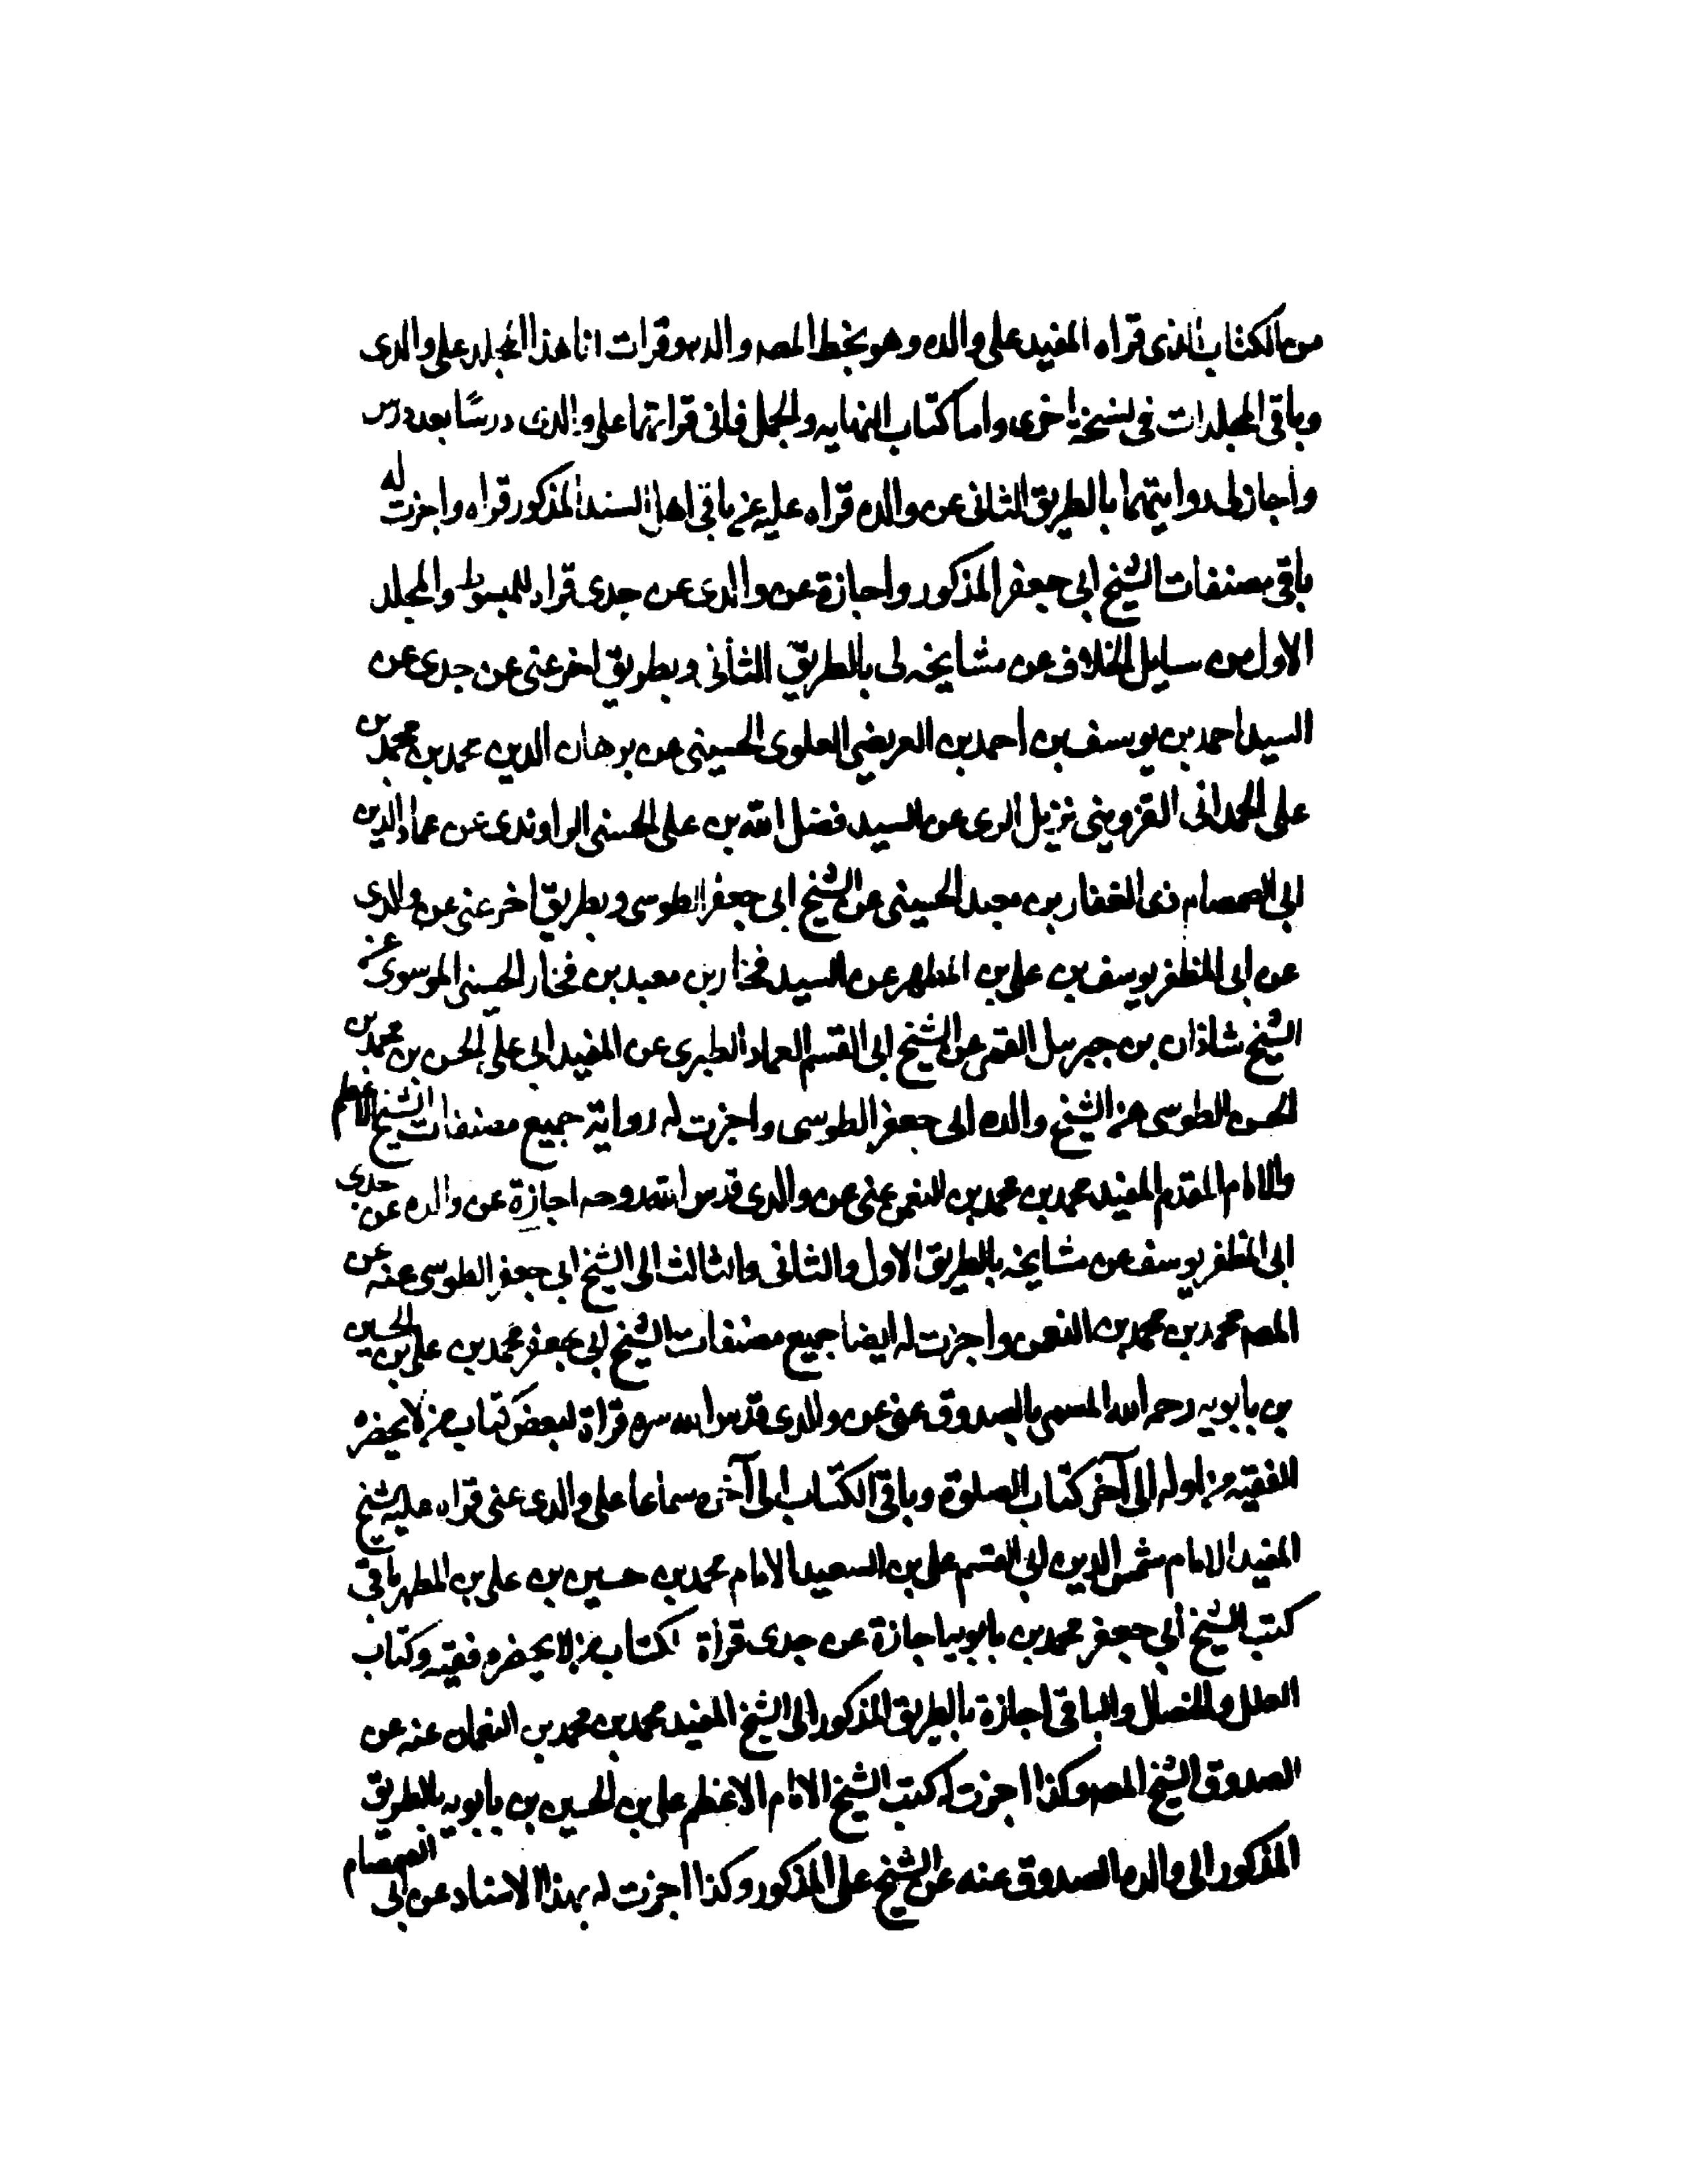 من الكتاب الذى قراه المفيد على والده وهو بخط المصـ والده وقرات انا هذا المجلد على والدى
وباقى المجلدات فى نسخة اخرى واما كتاب النهايه والجمل فانى قراتهما على والدى درسًا بعد درس
واجاز لى روايتهما بالطريق الثانى عن والده قراه عليه عن باقى اهل السند المذكور قراه واجزت له
باقى مصنفات الشيخ ابى جعفر المذكور واجازة عن والدى عن جدى قراه للمبسوط والمجلد
الاول من مسايل الخلاف عن مشايخه لى بالطريق الثانى وبطريق اخر عنى عن جدى عن
السيد احمد بن يوسف بن احمد بن العريضى العلوى الحسينى عن برهان الدين محمد بن محمد بن
على الحمدانى القزوينى نزيل الرى عن السيد فضل الله بن على الحسنى الراوندى عن عماد الدين
ابى الصمصام ذى الفقار بن معبد الحسينى عن الشيخ ابى جعفر الطوسى وبطريق اخر عنى عن والدى
عن ابى المظفر يوسف بن على بن المطهر عن السيد فخار بن معبد بن فخار الحسينى الموسوى عن
الشيخ شاذان بن جبرئيل القمى عن الشيخ ابى القسم العماد الطبرى عن المفيد ابى على الحسن بن محمد بن
الحسن الطوسى عن الشيخ والده ابى جعفر الطوسى واجزت له رواية جميع مصنفات الشيخ الاعظم
والامام المقدم المفيد محمد بن محمد بن النعمن عنى عن والدى قدس الله روحه اجازة عن والده عن جدى
ابى المظفر يوسف عن مشايخه بالطريق الاول والثانى والثالث الى الشيخ ابى جعفر الطوسى عنه عن
المصـ محمد بن محمد بن النعمن واجزت له ايضا جميع مصنفات الشيخ ابى جعفر محمد بن على بن الحسين
بن بابويه رحمه الله المسمى بالصدوق عنى عن والدى قدس الله سره قراة لبعض كتاب من لا يحضره
الفقيه من اوله الى آخر كتاب الصلوة وباقى الكتاب الى آخره سماعا على والدى عنى قراه عليه الشيخ
المفيد الامام شمس الدين ابى القسم على بن السعيد الامام محمد بن حسين بن على بن المطهر باقى
كتب الشيخ ابى جعفر محمد بن بابويه اجازة عن جدى قراة لكتاب من لا يحضره فقيه وكتاب
العلل والخصال والباقى اجازة بالطريق المذكور الى الشيخ المفيد محمد بن محمد بن النعمان عنه عن
الصدوق الشيخ المصـ وكذا اجزت له كتب الشيخ الامام الاعظم على بن الحسين بن بابويه بالطريق
المذكور الى والده الصدوق عنه عن الشيخ على المذكور وكذا اجزت له بهذا الاسناد عن ابى الصمصام